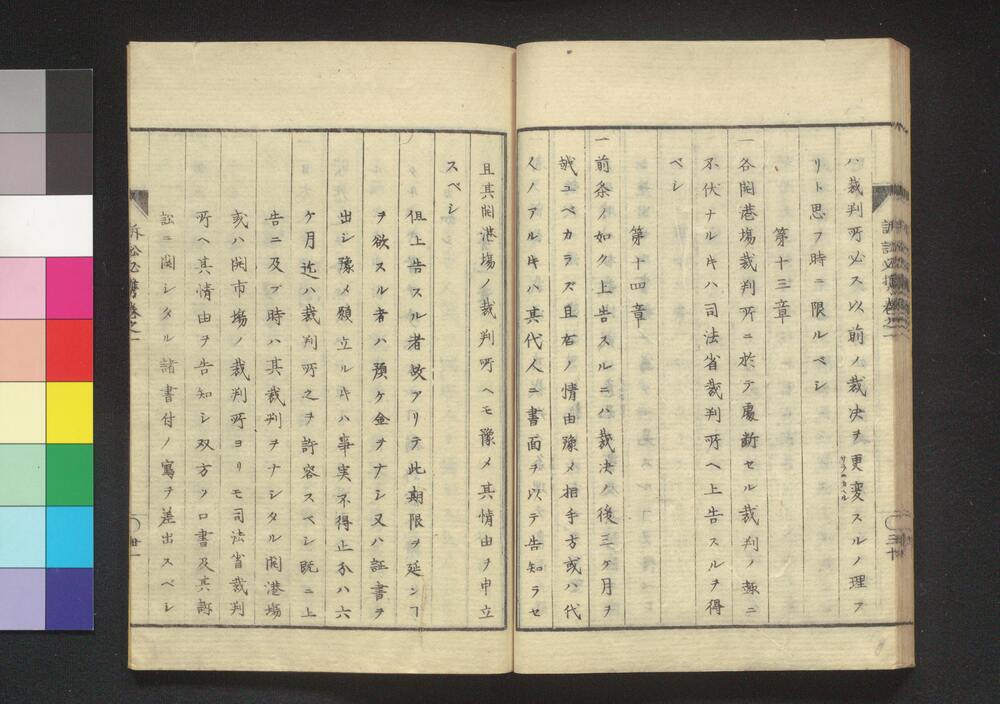 ハ裁判所必ス以前ノ裁决ヲ更変スルノ理ア
リト思フ時ニ限ルベシ
第十三章
一各開港場裁判所ニ於テ處断セル裁判ノ趣ニ
不伏ナルキハ司法省裁判所ヘ上告スルヲ得
ベシ
第十四章
一前条ノ如ク上告スルニハ裁决ノ後三ケ月ヲ
越ユベカラズ且右ノ情由豫メ相手方或ハ代
人ノアルキハ其代人ニ書面ヲ以テ告知ラセ
訴訟必携巻之一
三十
且其開港場ノ裁判所ヘモ豫メ其情由ヲ申立
スベシ
但上告スル者故アリテ此期限ヲ延ンヿ
ヲ欲スル者ハ預ケ金ヲナシ又ハ証書ヲ
出シ豫メ願立ルキハ事実不得止分ハ六
ケ月迠ハ裁判所之ヲ許容スベシ既ニ上
告ニ及ブ時ハ其裁判ヲナシタル開港場
或ハ開市場ノ裁判所ヨリモ司法省裁判
所ヘ其情由ヲ告知シ双方ノ口書及其訴
訟ニ関シタル諸書付ノ寫ヲ差出スベシ
訴訟必携巻之一